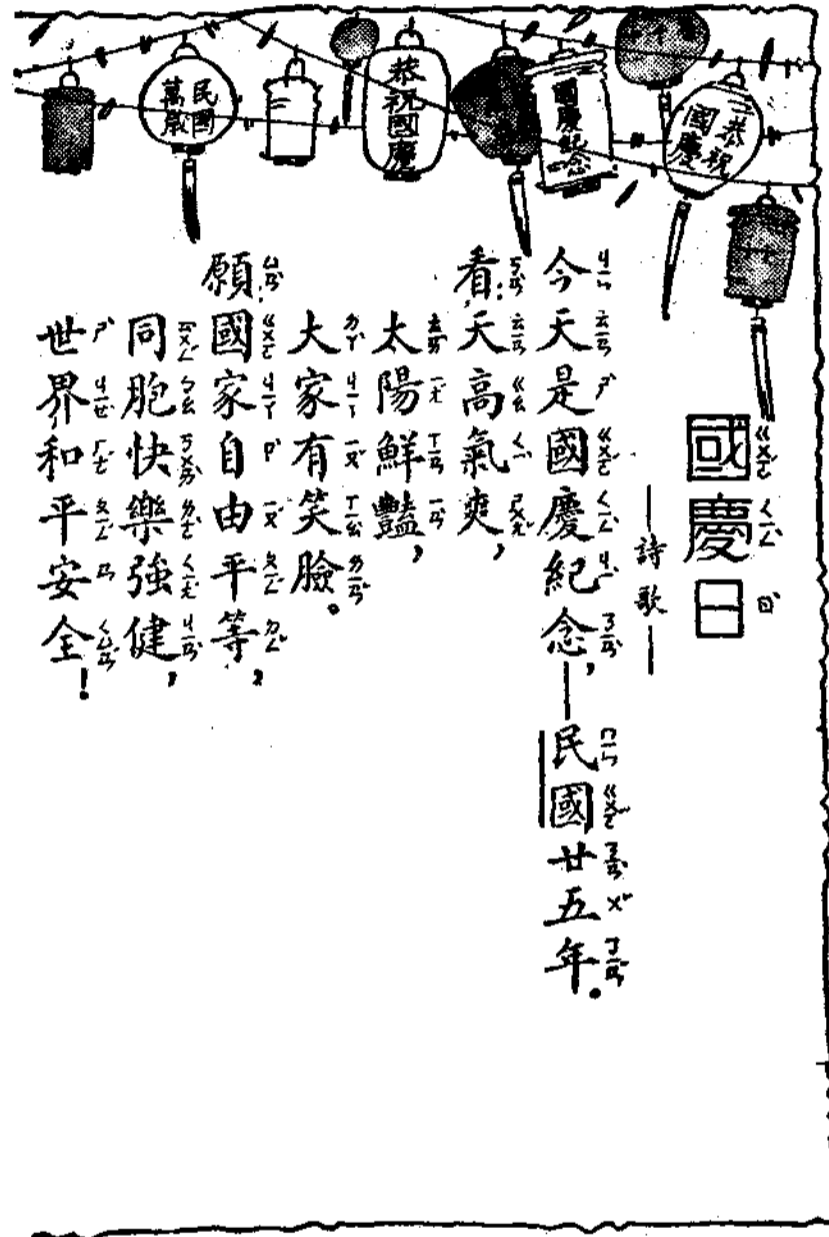 民國萬歲
恭祝國慶
國慶紀念
恭祝國慶
國慶日
——詩歌——
今天是國慶紀念,——民國廿五年。
看:天高氣爽,
太陽鮮豔,
大家有笑臉。
願:國家自由平等,
同胞快樂強健,
世界和平安全!